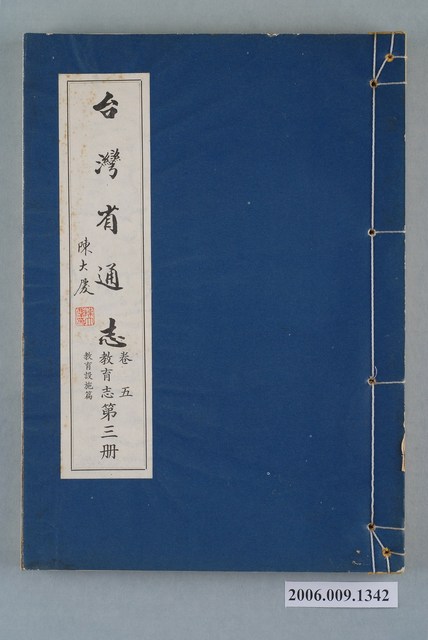 台灣省通志
陳大慶
卷五
教育志第三冊
教育設施篇
2006.009.1342